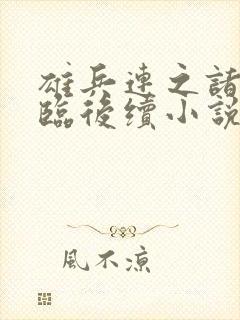 雄兵連之諸
臨後續小說
風不涼